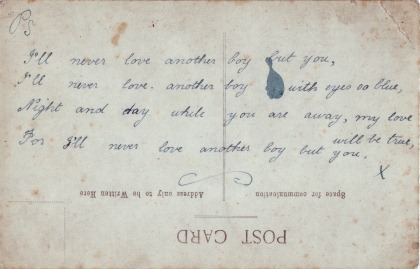 PS
I'll never love another boy but you,
I'll never love another boy with eyes so blue,
Night and day while you are away, my love
will be true,
For I'll never love another boy but you.
X
Space for communication
Address only to be Written Here
POST CARD